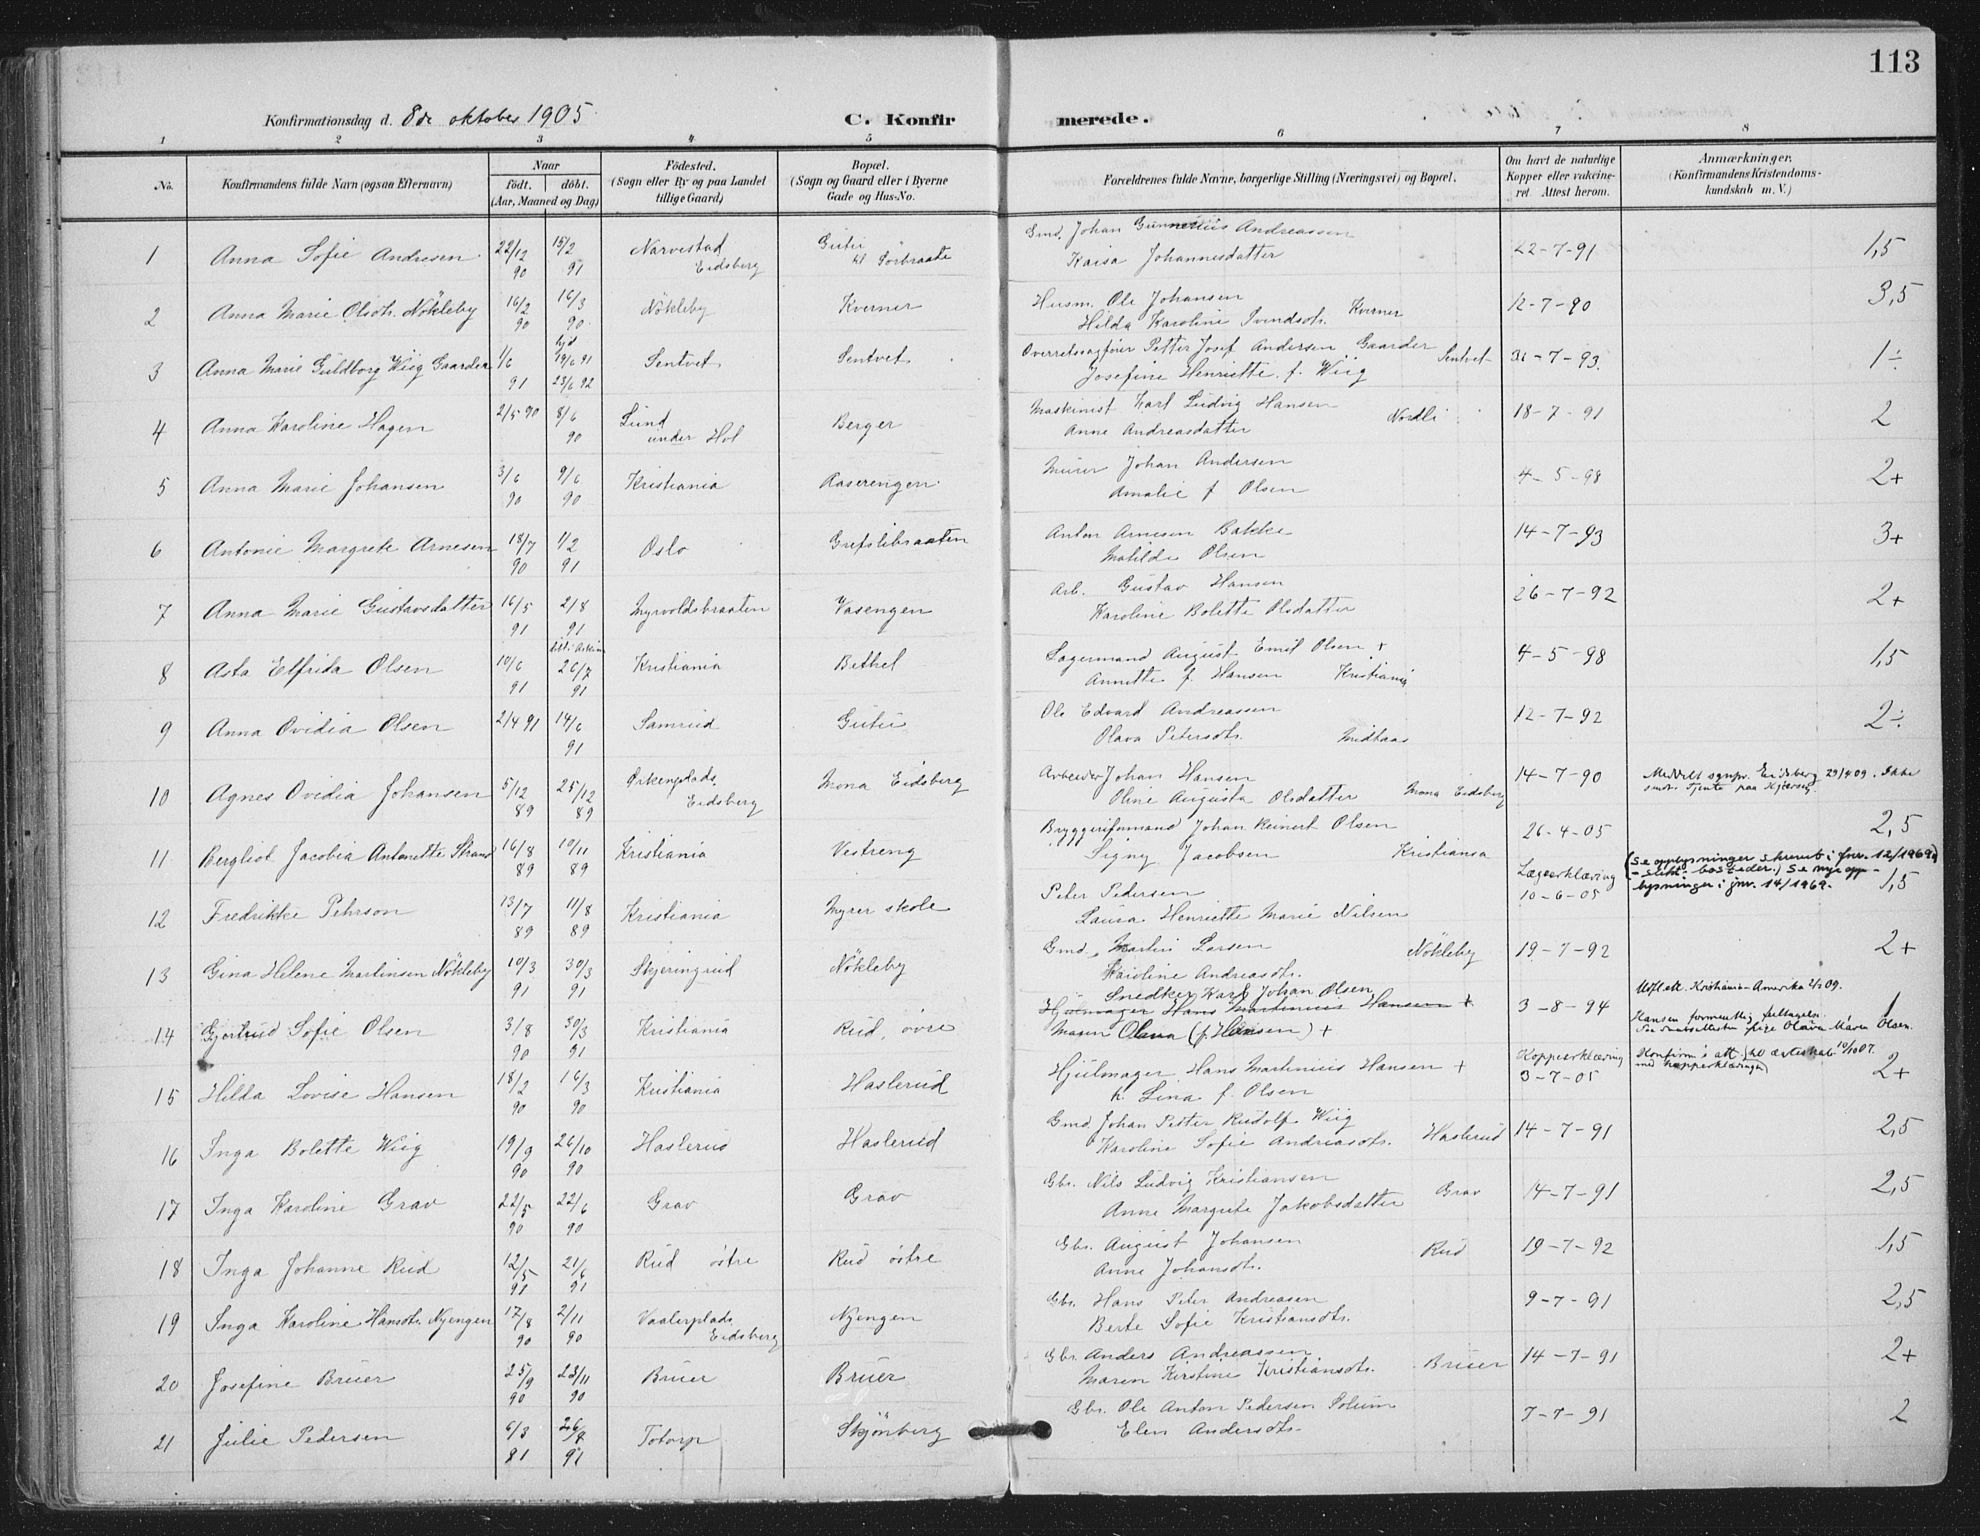 113
Konfirmationsdag d. 8de oktober 1905.
C. Konfirmerede.
1 2 3 4 5 6 7 8
No.
Konfirmandens fulde Navn (ogsaa Efternavn)
Naar
födt. döbt.
(Aar, Maaned og Dag)
Födested.
(Sogn eller By og paa Landet
tillige Gaard)
Bopæl.
(Sogn og Gaard eller i Byerne
Gade og Hus-No.
Forældrenes fulde Navne, borgerlige Stilling (Næringsvei) og Bopæl.
Om havt de naturlige
Kopper eller vakcine-
ret. Attest herom.
Anmærkninger.
(Konfirmandens Kristendoms-
kundskab m. V.)
1 Anna Sofie Andresen 22/12 90 15/2 91 Narvestad Eidsberg Gutu Sörbraate
Gmd. Johan Gunnerius Andreassen
Kaisa Johannesdatter
22-7-91 1,5
2 Anna Marie Olsdtr. Nökleby 16/2 90 16/3 90 Nökleby Kverner
Husm. Ole Johansen
Hilda Karoline Svendsdtr. Kverner
12-7-90 3,5
3 Anna Marie Guldborg Wiig Gaarder 1/6 91 hjd 14/6 91 23/6 92 Sentvet Sentvet
Overretssagförer Petter Josef Andersen Gaarder
Josefine Henriette f. Wiig Sentvet
31-7-93. 1÷
4 Anna Karoline Hagen 2/5 90 8/6 90 Lund under Hol Berger
Maskinist Karl Ludvig Hansen
Anne Andreasdatter Nordli
18-7-91 2
5 Anna Marie Johansen 3/6 90 9/6 90 Kristiania Raserengen
Murer Johan Andersen
Amalie f. Olsen
4-5-98 2+
6 Antonie Margrete Arnesen 18/7 90 1/2 91 Oslo Grefslibraaten
Anton Arnesen Bakke
Matilde Olsen
14-7-93 3+
7 Anna Marie Gustavsdatter 16/5 91 2/8 91 Myrvoldsbraaten Vasengen
Arb. Gustav Hansen
Karoline Bolette Olsdatter
26-7-92 2+
8 Asta Elfrida Olsen 10/6 91 26/7 91 Kristiania Bethel
Lagermand August Emil Olsen +
Annette f. Hansen Kristiania
4-5-98 1,5
9 Anna Ovidia Olsen 2/4 91 14/6 91 Samrud Gutu
Ole Edvard Andreassen
Olava Petersdtr. Midtaas
12-7-92 2÷
10 Agnes Ovidia Johansen 5/12 89 25/12 89 Ørkenplads Eidsberg Mona Eidsberg
Arbeider Johan Hansen
Oline Augusta Olsdatter Mona Eidsberg
14-7-90
Meddelt sgnpr. Eidsberg 29/4 09. Ikke
11 Bergliot Jacobia Antonette Strand 16/8 89 10/11 89 Kristiania Vestreng
Bryggeriformand Johan Reinert Olsen
Signy Jacobsen Kristiania
26-4-05 2,5
(Se opplysninger skrevet i jnr. 12/1969
Se nye opp-
lysninger i jnr. 14/1969.
12 Fredrikke Pehrson 13/7 89 11/8 89 Kristiania Myrer skole
Peter Pedersen
Laura Henriette Marie Nilsen
Lægeerklæring
10-6-05 1,5
13 Gina Helene Martinsen Nökleby 10/3 91 30/3 91 Skjeringrud Nökleby
Gmd. Martin Larsen
Karoline Andreasdtr. Nökleby
19-7-92 2+
14 Gjertrud Sofie Olsen 3/8 90 30/3 91 Kristiania Rud, övre
Snedker Karl Johan Olsen
Hjulmager Hans Martinius Hansen +
Maren Olava (f. Hansen) +
3-8-94 1
Utfl. att. Kristiania-Amerika 2/1 09.
pige Olava Maren Olsen.
15 Hilda Lovise Hansen 18/2 90 16/3 90 Kristiania Haslerud
Hjulmager Hans Martinius Hansen +
h. Lina f. Olsen
Koppeerklæring
3-7-05 2+
Konfirm's att. 10/10 07.
med kopperklæringen
16 Inga Bolette Wiig 19/9 90 26/10 90 Haslerud Haslerud
Gmd. Johan Petter Rudolf Wiig
Karoline Sofie Andreasdtr. Haslerud
14-7-91 2,5
17 Inga Karoline Grav 22/5 90 22/6 90 Grav Grav
Gbr. Nils Ludvig Kristiansen
Anne Margrete Jakobsdatter Grav
14-7-91 2,5
18 Inga Johanne Rud 12/5 91 21/6 91 Rud östre Rud östre
Gbr. August Johansen
Anne Johansdtr. Rud
19-7-92 1,5
19 Inga Karoline Hansdtr. Nyengen 17/8 90 2/11 90 Vaalerplads Eidsberg Nyengen
Gbr. Hans Peter Andreasen
Berte Sofie Kristiansdtr.
9-7-91 2,5
20 Josefine Bruer 25/9 90 23/11 90 Bruer Bruer
Gbr. Anders Andreassen
Maren Kirstine Kristiansdtr. Bruer
14-7-91 2+
21 Julie Pedersen 6/3 91 Totorp Skjönberg
Gbr. Ole Anton Pedersen Solum
Elen Andersdtr.
7-7-91 2